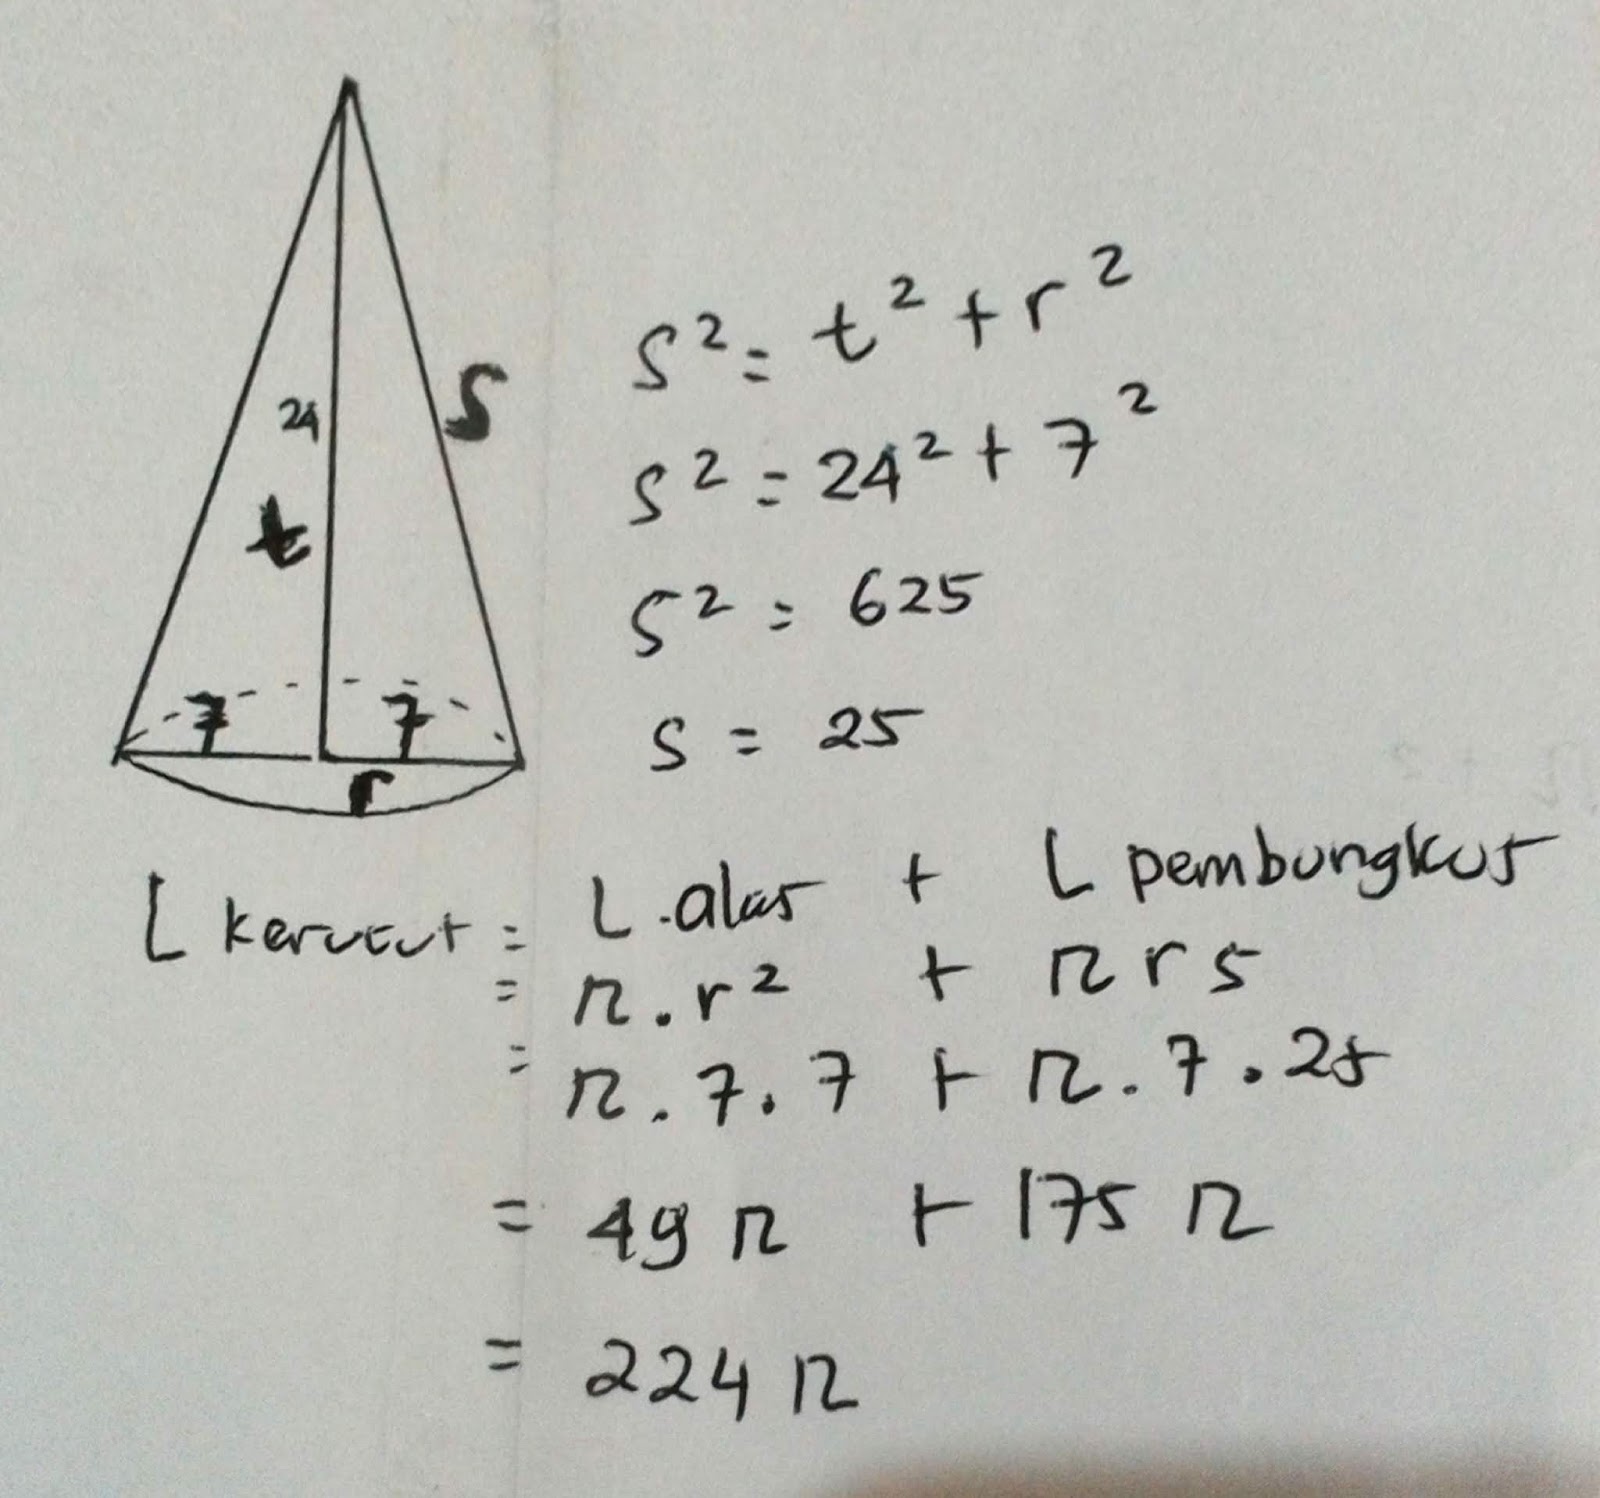 24
S
t
7 7
r
S² = t² + r²
S² = 24² + 7²
S² = 625
S = 25
L kerucut = L.alas + L pembungkus
= π.r² + π r s
= π.7.7 + π.7.25
= 49 π + 175 π
= 224 π